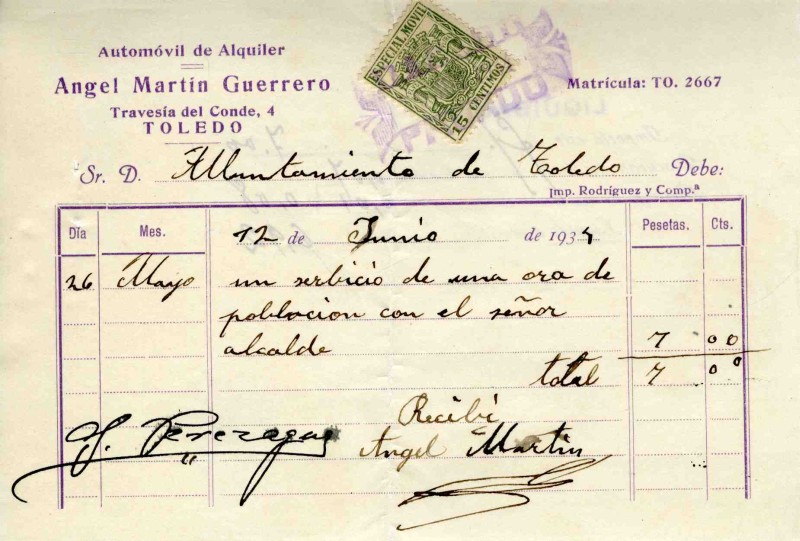 Automóvil de Alquiler
Angel Martín Guerrero
Travesía del Conde, 4
TOLEDO
ESPECIAL MÓVIL
15 CENTIMOS
Matrícula: TO. 2667
Sr. D. Alluntamiento de Toledo Debe:
Imp. Rodríguez y Comp.ª
Día Mes. 12 de Junio de 193 Pesetas. Cts.
26 Mayo un serbicio de una ora de
poblacion con el señor
alcalde 7 00
total 7 00
Recibí
Angel Martin